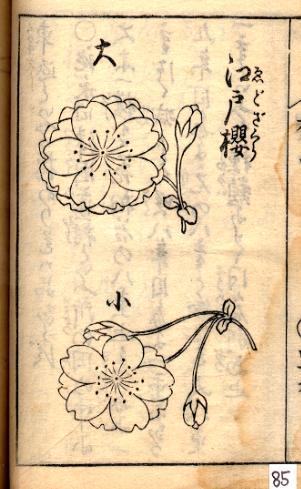 江戸櫻
ゑどざくら
大
小
85